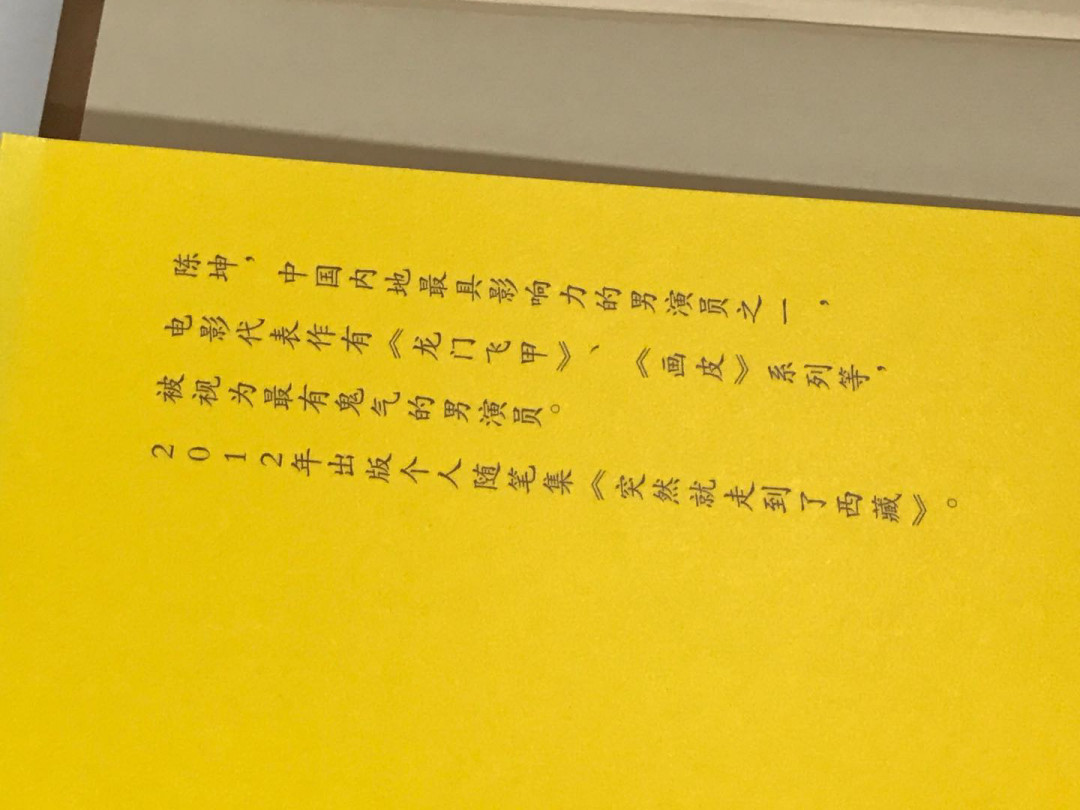 陈坤，中国内地最具影响力的男演员之一，
电影代表作有《龙门飞甲》、《画皮》系列等，
被视为最有鬼气的男演员。
2012年出版个人随笔集《突然就走到了西藏》。